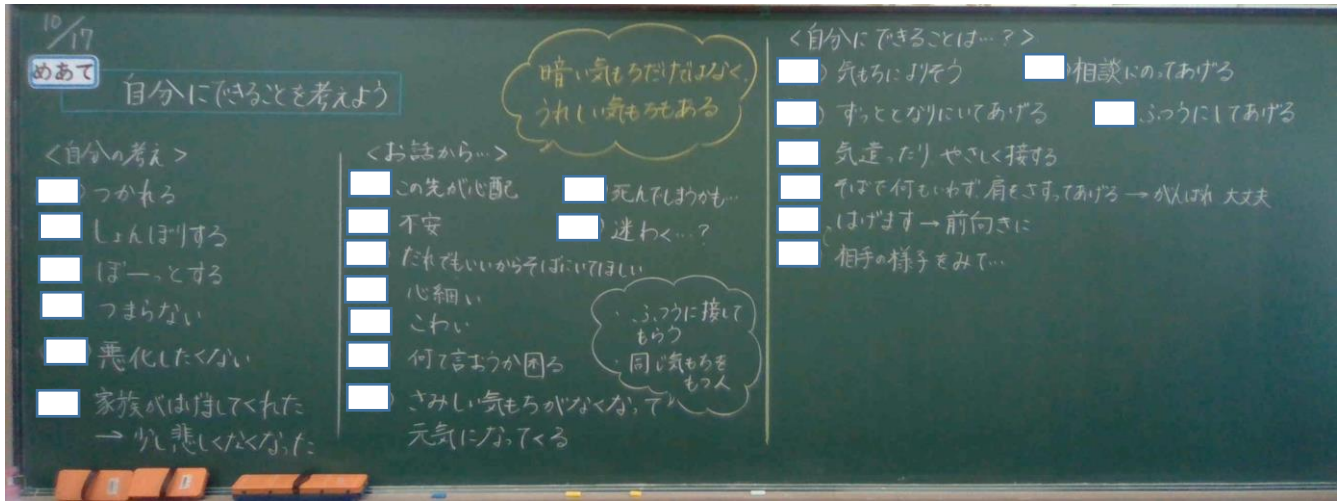 10/17
めあて
自分にできることを考えよう
<自分の考え>
つかれる
しょんぼりする
ぼーっとする
つまらない
悪化したくない
家族がはげましてくれた
→少し悲しくなくなった
<お話から…>
この先が心配
死んでしまうかも…
不安
迷わく…?
だれでもいいからそばにいてほしい
心細い
こわい
何て言おうか困る
さみしい気もちがなくなって
元気になってくる
暗い気もちだけではなく、
うれしい気もちもある
・ふつうに接して
もらう
・同じ気もちを
もつ人
<自分にできることは…?>
気もちによりそう
相談にのってあげる
ずっととなりにいてあげる
ふつうにしてあげる
気遣ったりやさしく接する
そばで何もいわず、肩をさすってあげる→がんばれ 大丈夫
はげます→前向きに
相手の様子をみて…